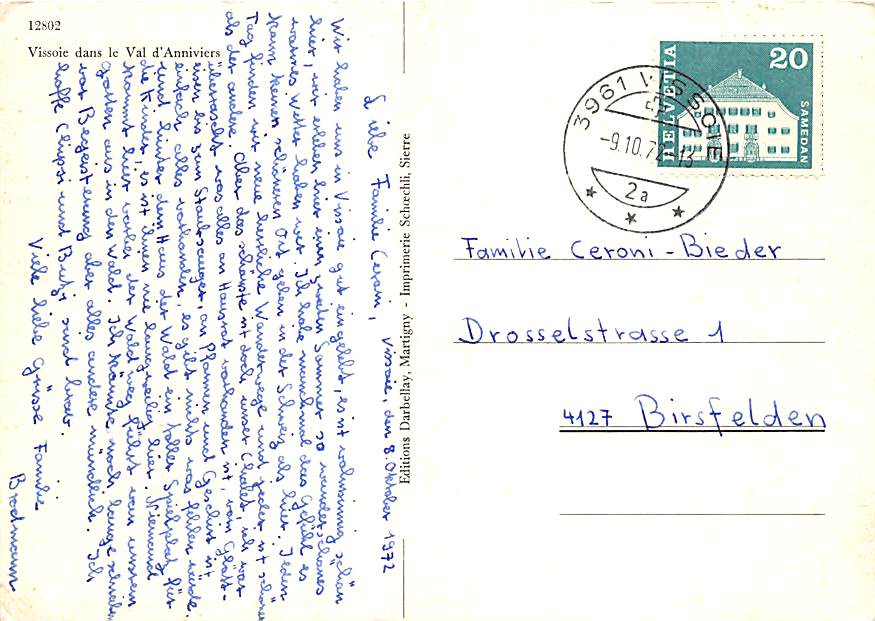 12802
Vissoie dans le Val d'Anniviers
Vissoie, den 8. Oktober 1972
Liebe Familie Ceroni,
Wir haben uns in Vissoie gut eingelebt, es ist wahnsinnig schön
hier, wir erleben hier einen zweiten Sommer so wunderschönes
warmes Wetter haben wir. Ich habe manchmal das Gefühl es
kann keinen schöneren Ort geben in der Schweiz als hier. Jeden
Tag finden wir neue herrliche Wanderwege und jeder ist schöner
als der andere. Aber das schönste ist doch unser Chalet, ich war
überrascht was alles an Hausrat vorhanden ist, vom Glätt-
eisen bis zum Staubsauger, an Pfannen und Geschirr ist
einfach alles vorhanden, es gibt nichts was fehlen würde
und hinter dem Haus der Wald ein toller Spielplatz für
die Kinder, es ist ihnen nie langweilig hier. Niemand
kommt hier vorbei der Waldweg führt von unserem
Garten aus in den Wald. Ich könnte noch lange schreiben
vor Begeisterung aber alles andere mündlich. Ich
hoffe Chipsi und Butzi sind brav.
Viele liebe Grüsse Familie
Brodmann
Editions Darbellay, Martigny - Imprimerie Schœchli, Sierre
HELVETIA
20
SAMEDAN
3961 VISSOIE
-9.10.72-13
2a
Familie Ceroni-Bieder
Drosselstrasse 1
4127 Birsfelden